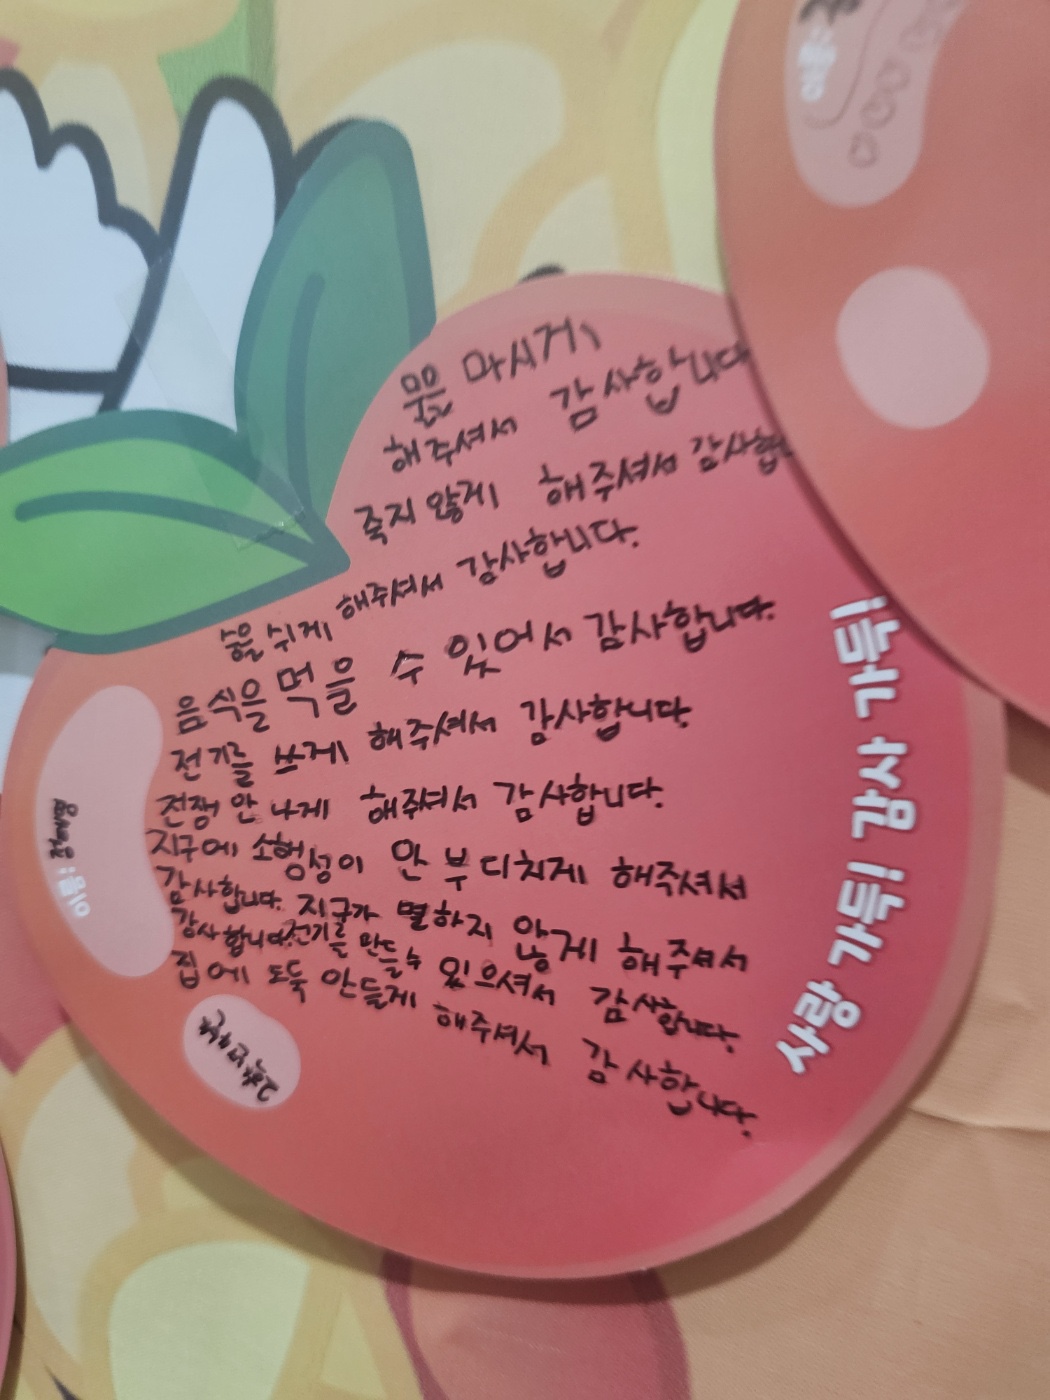 물을 마시게
해주셔서 감사합니다
죽지 않게 해주셔서 감사합
숨을 쉬게 해주셔서 감사합니다.
음식을 먹을 수 있어서 감사합니다.
전기를 쓰게 해주셔서 감사합니다.
전쟁 안 나게 해주셔서 감사합니다.
지구에 소행성이 안 부디치게 해주셔서
감사합니다. 지구가 멸하지 안게 해주셔서
감사합니다. 전기를 만들 수 있으셔서 감사합니다.
집에 도둑 안들게 해주셔서 감사합니다.
이름:
사랑 가득! 감사 가득!
이름: